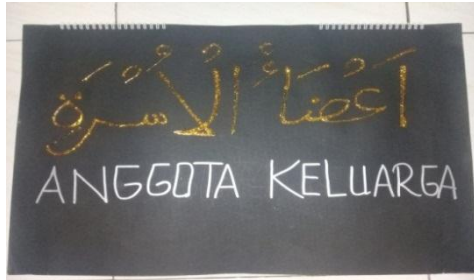 أَعْضَاءُ الْأُسْرَةِ
ANGGOTA KELUARGA